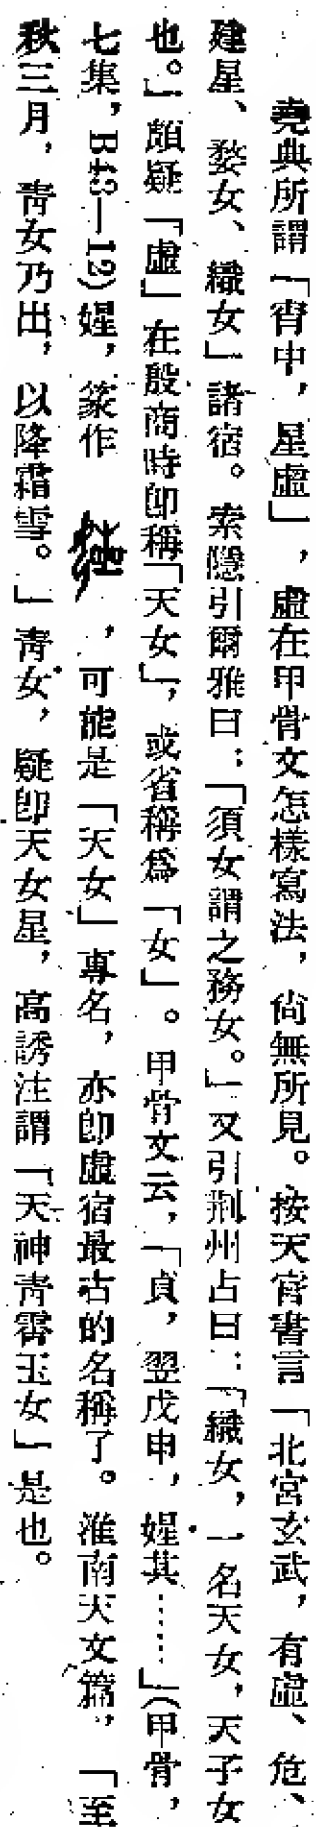 堯典所謂「宵中，星虛」，虛在甲骨文怎樣寫法，尙無所見。按天官書言「北宮玄武，有虛、危、
建星、婺女、織女」諸宿。索隱引爾雅曰：「須女謂之務女。」又引荆州占曰：「織女，一名天女，天子女
也。」頗疑「虛」在殷商時卽稱「天女」，或省稱爲「女」。甲骨文云，「貞，翌戊申，娗其……」（甲骨，
七集，B43—12）娗，篆作　，可能是「天女」專名，亦卽虛宿最古的名稱了。淮南天文篇，「至
秋三月，靑女乃出，以降霜雪。」靑女，疑卽天女星，高誘注謂「天神靑霄玉女」是也。